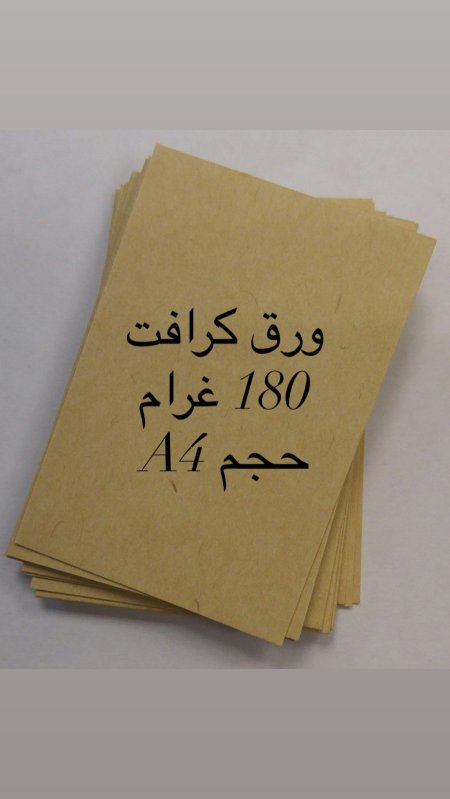 ورق كرافت
180 غرام
حجم A4